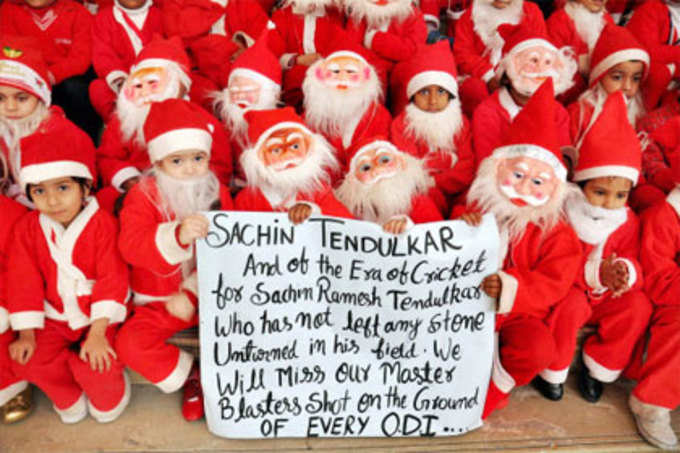 SACHIN TENDULKAR
And of the Era of Cricket
for Sachin Ramesh Tendulkar
Who has not left any stone
Unturned in his field. We
Will Miss Our Master
Blasters Shot on the Ground
OF EVERY O.D.I....